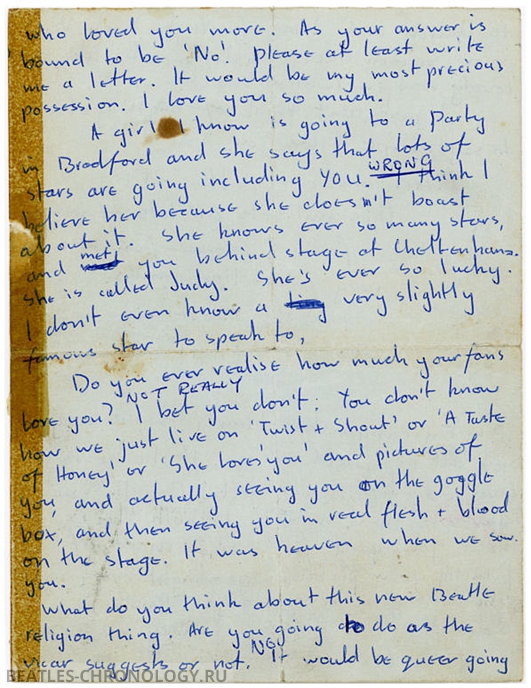 who loved you more. As your answer is
bound to be 'No'. Please at least write
me a letter. It would be my most precious
possession. I love you so much.
A girl I know is going to a Party
in Bradford and she says that lots of
WRONG
stars are going including YOU. I think I
believe her because she doesn't boast
about it. She knows ever so many stars,
and met you behind stage at Cheltenham.
She is called Judy. She's ever so lucky.
I don't even know a very slightly
famous star to speak to,
Do you ever realise how much your fans
NOT REALLY
love you? I bet you don't: You don't know
how we just live on 'Twist + Shout' or 'A Taste
of Honey' or 'She loves you' and pictures of
you, and actually seeing you on the goggle
box, and then seeing you in real flesh + blood
on the stage. It was heaven when we saw
you.
What do you think about this new Beatle
religion thing. Are you going to do as the
NO
vicar suggests or not. It would be queer going
BEATLES-CHRONOLOGY.RU